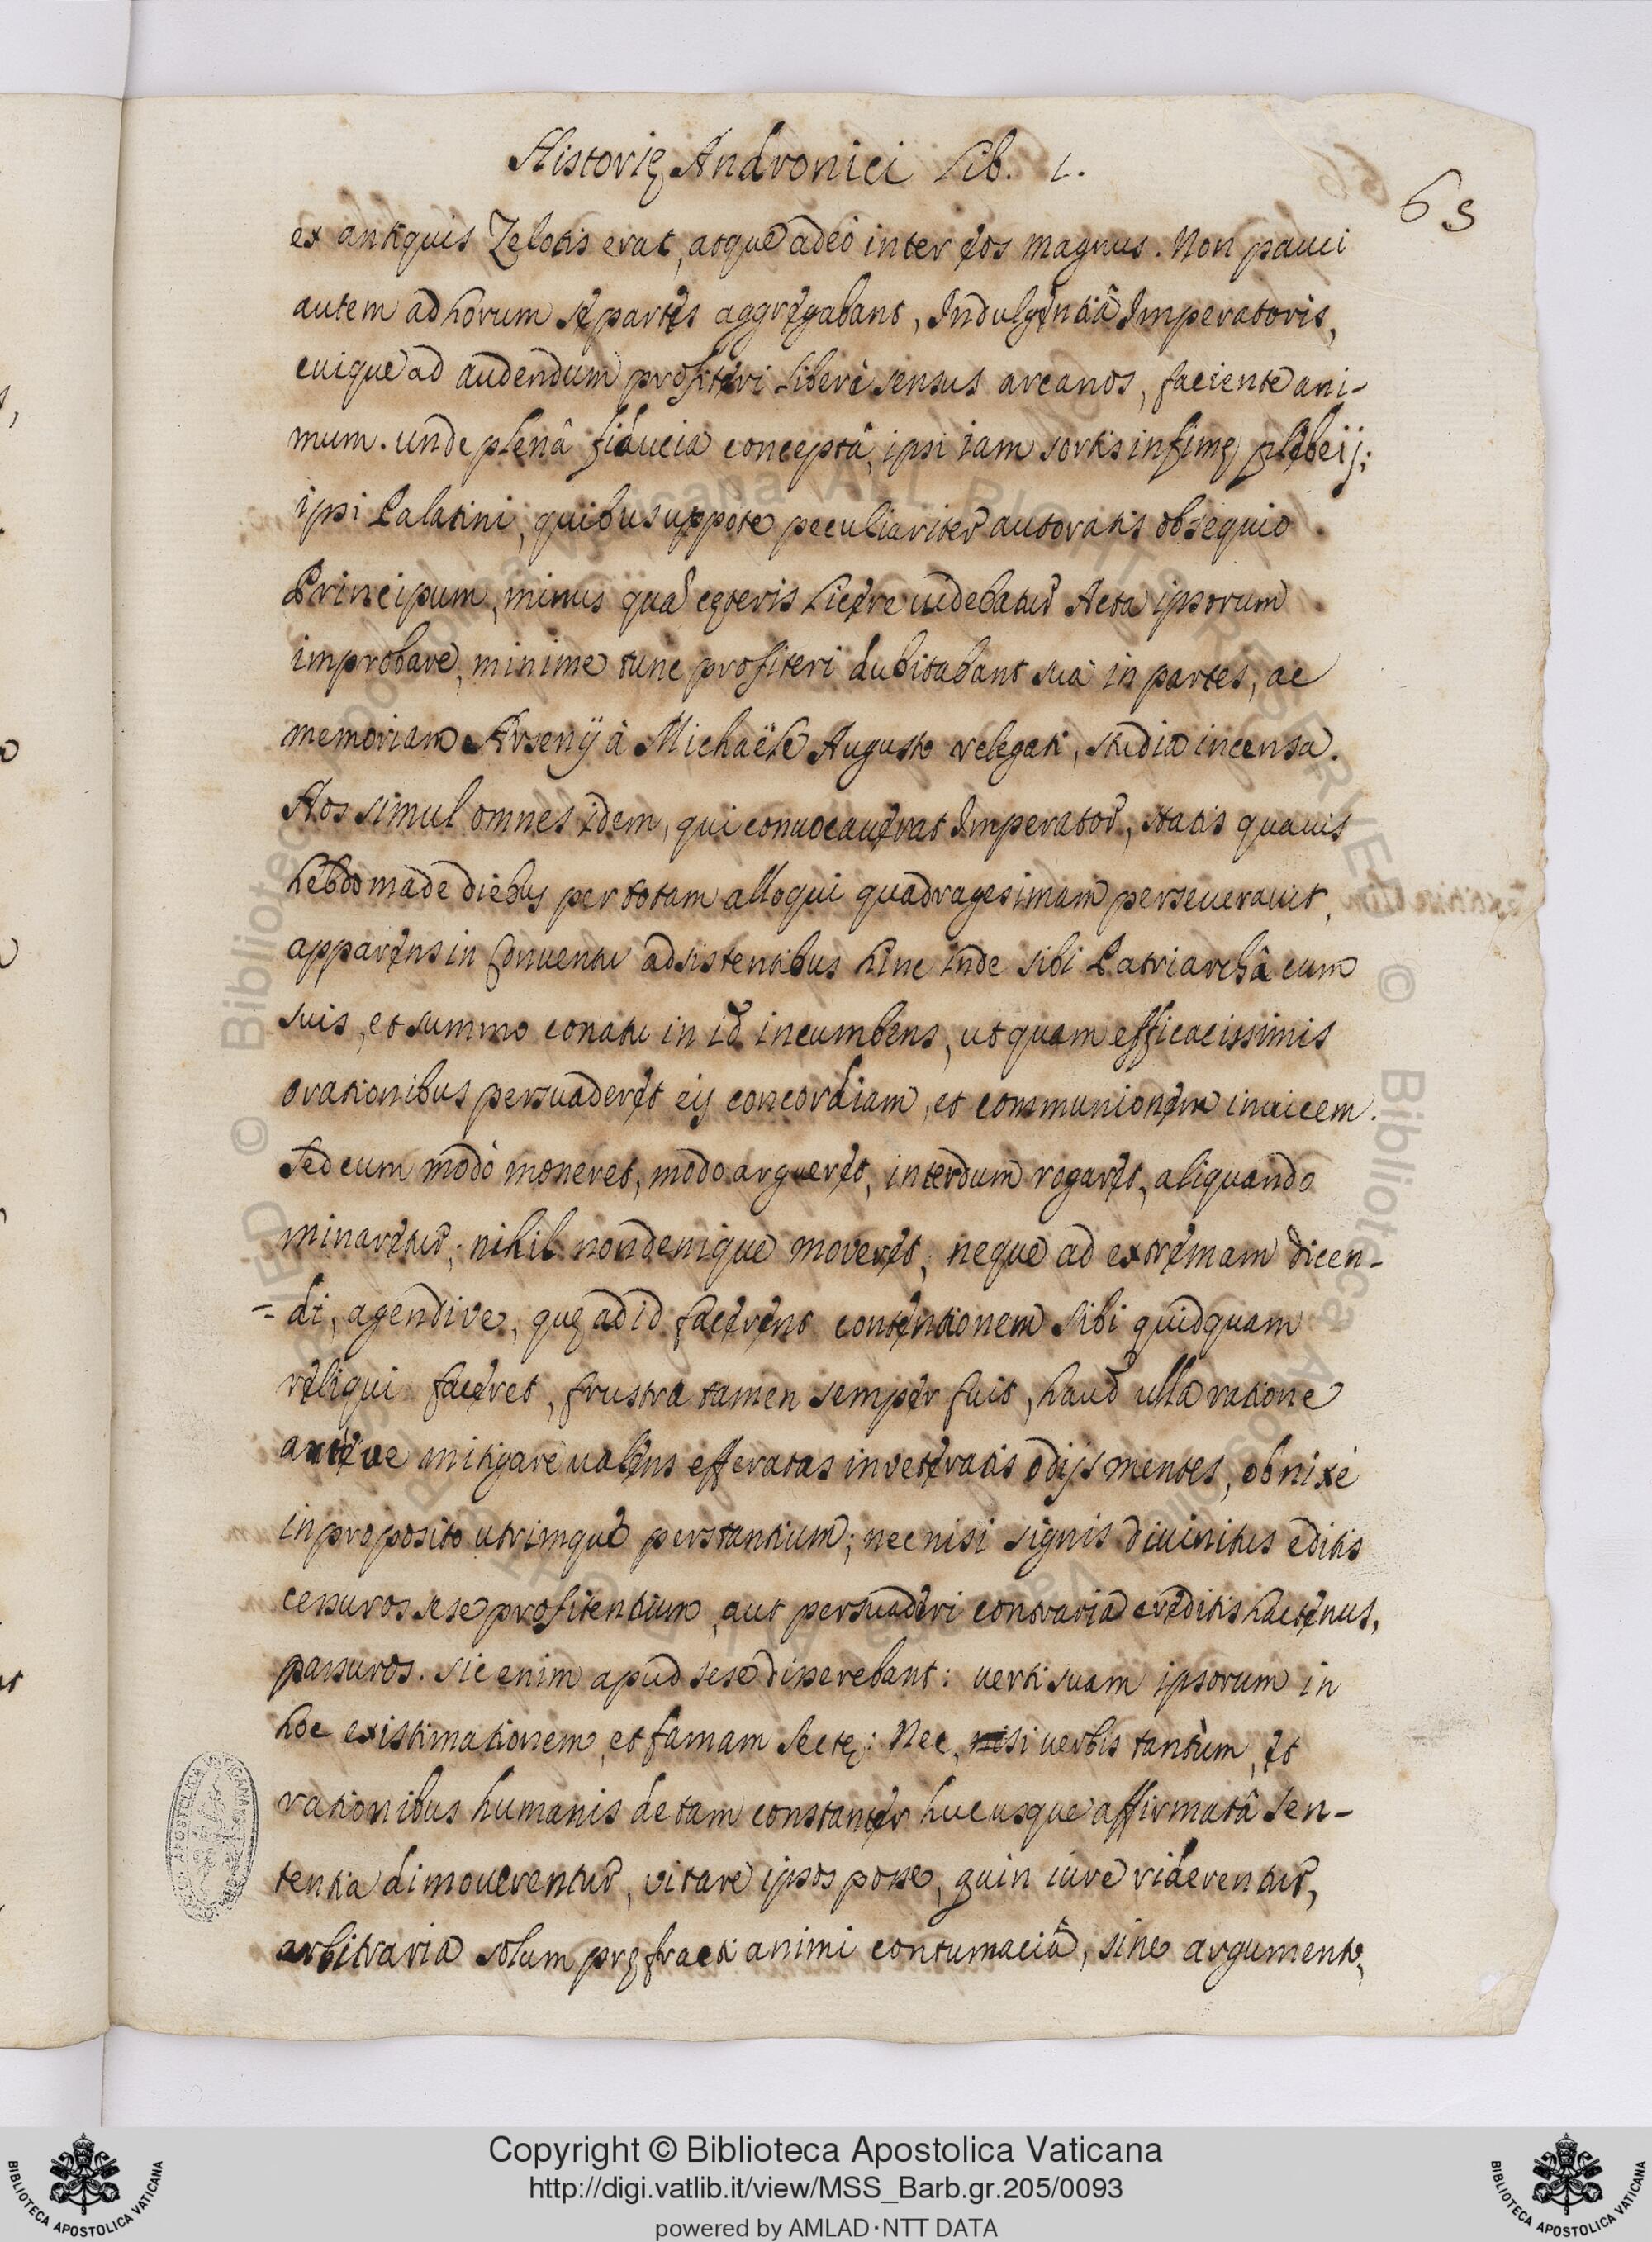 Historię Andronici Lib. 1.
63
ex antiquis Zelotis erat, atque adeò inter eos magnus. Non pauci
autem ad horum se partes aggregabant, Indulgentiâ Imperatoris,
cuique ad audendum profiteri liberè sensus arcanos, faciente ani-
mum. unde plenâ fiducia conceptâ, ipsi iam sortis infimę plebeij;
ipsi Palatini, quibus uppote peculiariter autoratis obsequio
Principum, minus quà cęteris licere uidebatur Acta ipsorum
improbare, minime tunc profiteri dubitabant sua in partes, ac
memoriam Arsenÿ à Michaële Augusto relegati, studia incensa.
Hos simul omnes idem, qui conuocauerat Imperator, statis quauis
hebdomade diebus per totam alloqui quadragesimam perseuerauit,
apparens in Conuentu adsistentibus hinc inde sibi Patriarchâ cum
suis, et summo conatu in id incumbens, ut quam efficacissimis
orationibus persuaderet eij concordiam, et communionem inuicem.
Sed cum modò moneret, modo argueret, interdum rogaret, aliquando
minaretur; nihil non denique moveret; neque ad extremam dicen-
=di, agendive, quę ad id facerent contentionem sibi quidquam
reliqui faceret, frustra tamen semper fuit, haud ulla ratione
arteve mitigare ualens efferatas inveteratis odijs mentes, obnixè
in proposito utrimque perstantium; nec nisi signis diuinitus editis
cessuros sese profitentium, aut persuaderi contraria creditis hactenus,
passuros. sic enim apud sese disserebant: uerti suam ipsorum in
hoc existimationem, et famam sectę: Nec, si uerbis tantùm, et
rationibus humanis de tam constanter hucusque affirmatâ sen-
tentia dimouerentur, vitare ipsos posse, quin iure viderentur,
arbitraria solum pręfracti animi contumaciâ, sine argumento,
Copyright © Biblioteca Apostolica Vaticana
http://digi.vatlib.it/view/MSS_Barb.gr.205/0093
powered by AMLAD·NTT DATA
BIBLIOTECA APOSTOLICA VATICANA
BIBLIOTECA APOSTOLICA VATICANA